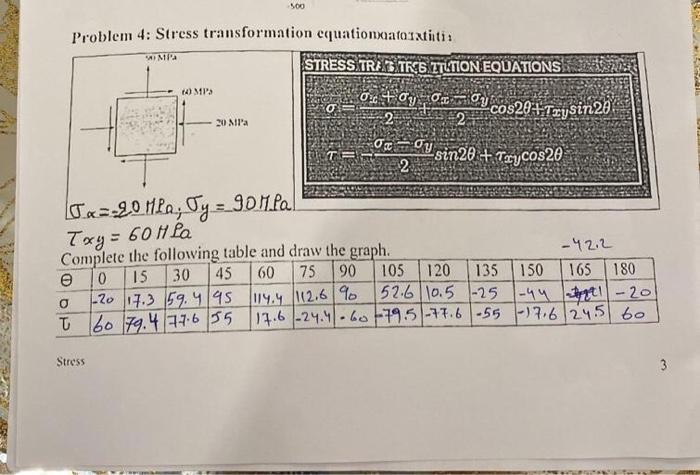 -500
Problem 4: Stress transformation
90 MPa
60 MPa
20 MPa
EQUATIONS
σ = σx + σy / 2 + σx − σy / 2 cos2θ + τxy sin2θ
τ = − σx − σy / 2 sin2θ + τxy cos2θ
σx = -20 MPa; σy = 90 MPa
τxy = 60 MPa
Complete the following table and draw the graph.
-42.2
Θ 0 15 30 45 60 75 90 105 120 135 150 165 180
σ -20 17.3 59.4 95 114.4 112.6 90 52.6 10.5 -25 -44 -20
τ 60 79.4 77.6 55 17.6 -24.4 -60 -79.5 -77.6 -55 -17.6 24.5 60
Stress
3